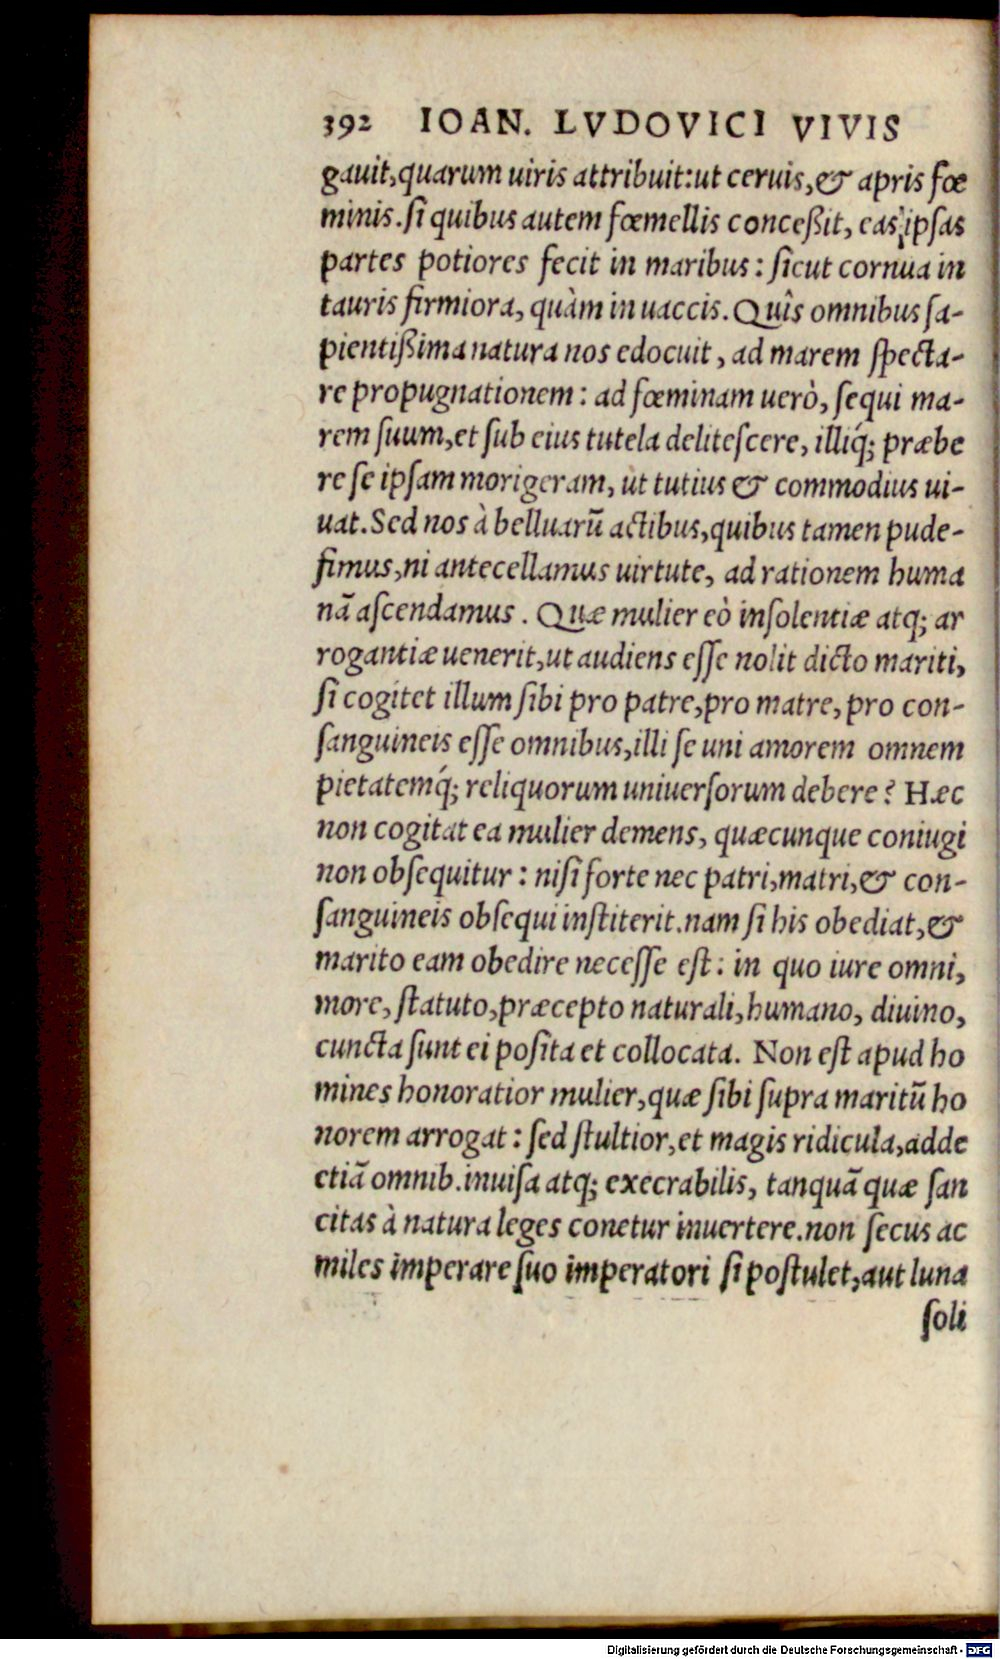 392 IOAN. LVDOVICI VIVIS
gauit, quarum uiris attribuit: ut ceruis, & apris fœ
minis. ſi quibus autem fœmellis conceßit, eas ipſas
partes potiores fecit in maribus: ſicut cornua in
tauris firmiora, quàm in uaccis. Quîs omnibus ſa-
pientißima natura nos edocuit, ad marem ſpecta-
re propugnationem: ad fœminam uerò, ſequi ma-
rem ſuum, et ſub eius tutela deliteſcere, illiq́; præbe
re ſe ipſam morigeram, ut tutius & commodius ui-
uat. Sed nos à belluarũ actibus, quibus tamen pude-
fimus, ni antecellamus uirtute, ad rationem huma
nã aſcendamus. Quæ mulier eò inſolentiæ atq; ar
rogantiæ uenerit, ut audiens eſſe nolit dicto mariti,
ſi cogitet illum ſibi pro patre, pro matre, pro con-
ſanguineis eſſe omnibus, illi ſe uni amorem omnem
pietatemq́; reliquorum uniuerſorum debere? Hæc
non cogitat ea mulier demens, quæcunque coniugi
non obſequitur: niſi forte nec patri, matri, & con-
ſanguineis obſequi inſtiterit. nam ſi his obediat, &
marito eam obedire neceſſe eſt: in quo iure omni,
more, ſtatuto, præcepto naturali, humano, diuino,
cuncta ſunt ei poſita et collocata. Non eſt apud ho
mines honoratior mulier, quæ ſibi ſupra maritũ ho
norem arrogat: ſed ſtultior, et magis ridicula, adde
etiã omnib. inuiſa atq; execrabilis, tanquã quæ ſan
citas à natura leges conetur inuertere. non ſecus ac
miles imperare ſuo imperatori ſi poſtulet, aut luna
ſoli
Digitalisierung gefördert durch die Deutsche Forschungsgemeinschaft - DFG